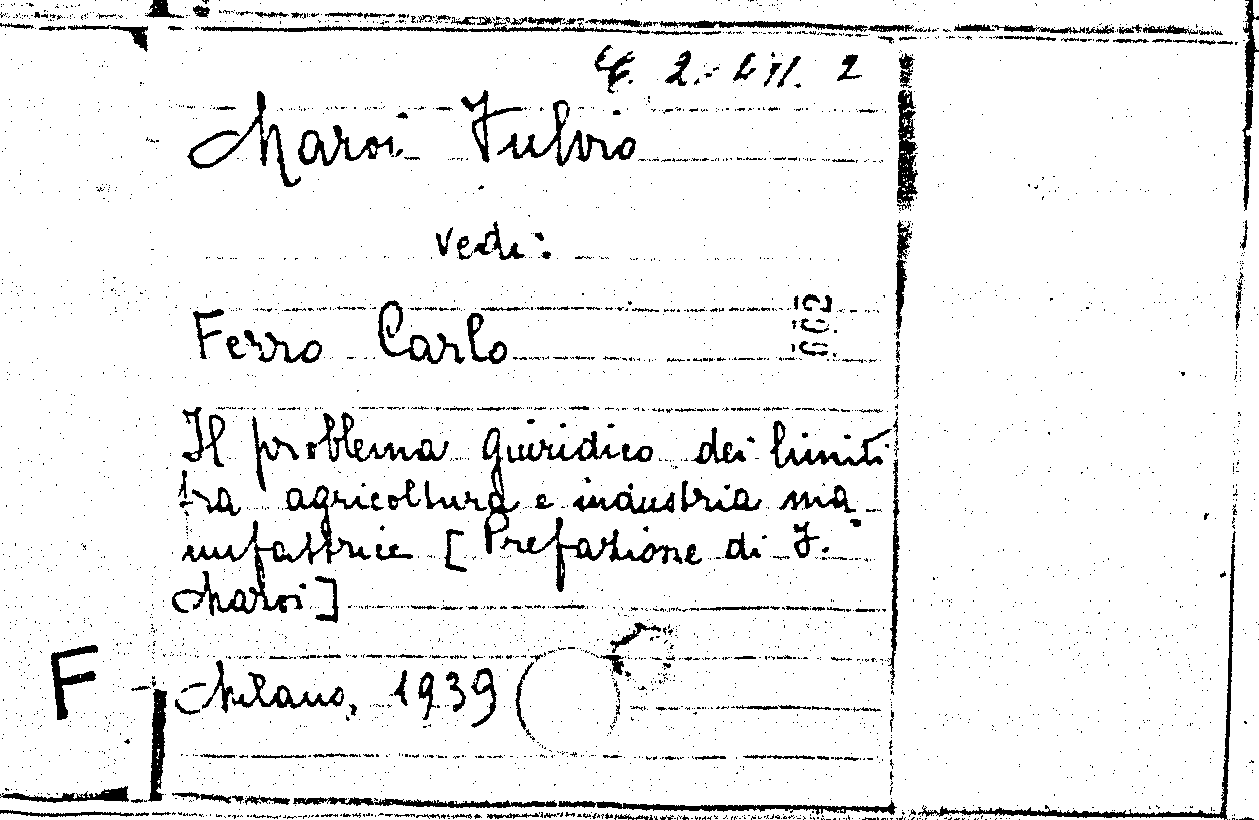 2.
2
Maroi Fulvio
vedi:
Ferro Carlo
Il problema giuridico dei limiti
tra agricoltura e industria ma
nifattrice [Prefazione di F.
Maroi]
F
Milano, 1939